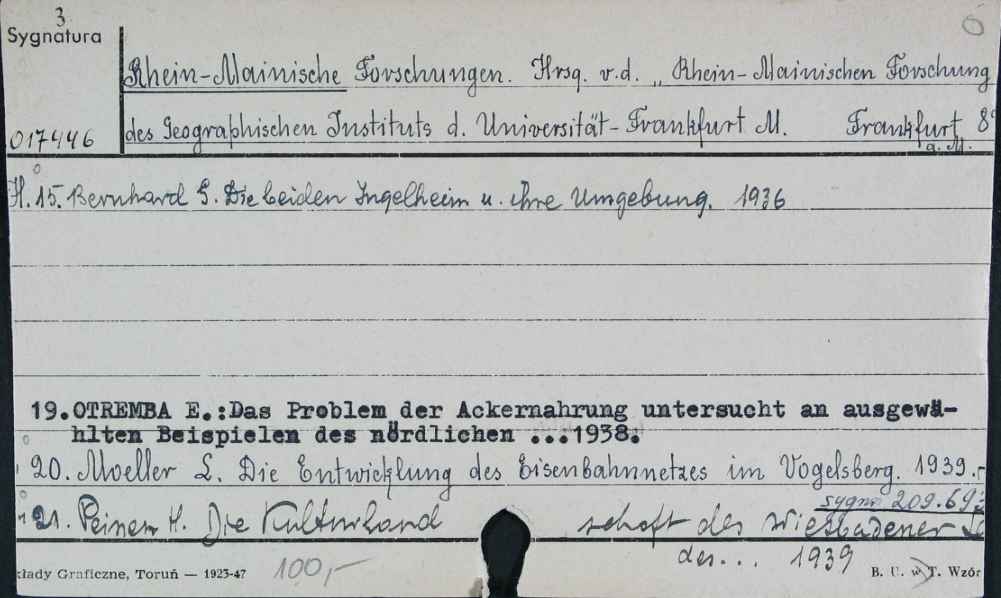 3
Sygnatura
Rhein-Mainische Forschungen. Hrsg. v.d. „Rhein-Mainischen Forschung
017446 des Geographischen Instituts d. Universität-Frankfurt M. Frankfurt 8°
a. M.
H. 15. Bernhard G. Die beiden Ingelheim u. ihre Umgebung. 1936
19. OTREMBA E.: Das Problem der Ackernahrung untersucht an ausgewä-
hlten Beispielen des nördlichen ...1938.
20. Moeller L. Die Entwicklung des Eisenbahnnetzes im Vogelsberg. 1939.
sygn. 209.69
21. Peiner H. Die Kulturland schaft des Wiesbadener
des... 1939
kłady Graficzne, Toruń — 1925-47 100,- B. U. w T. Wzór